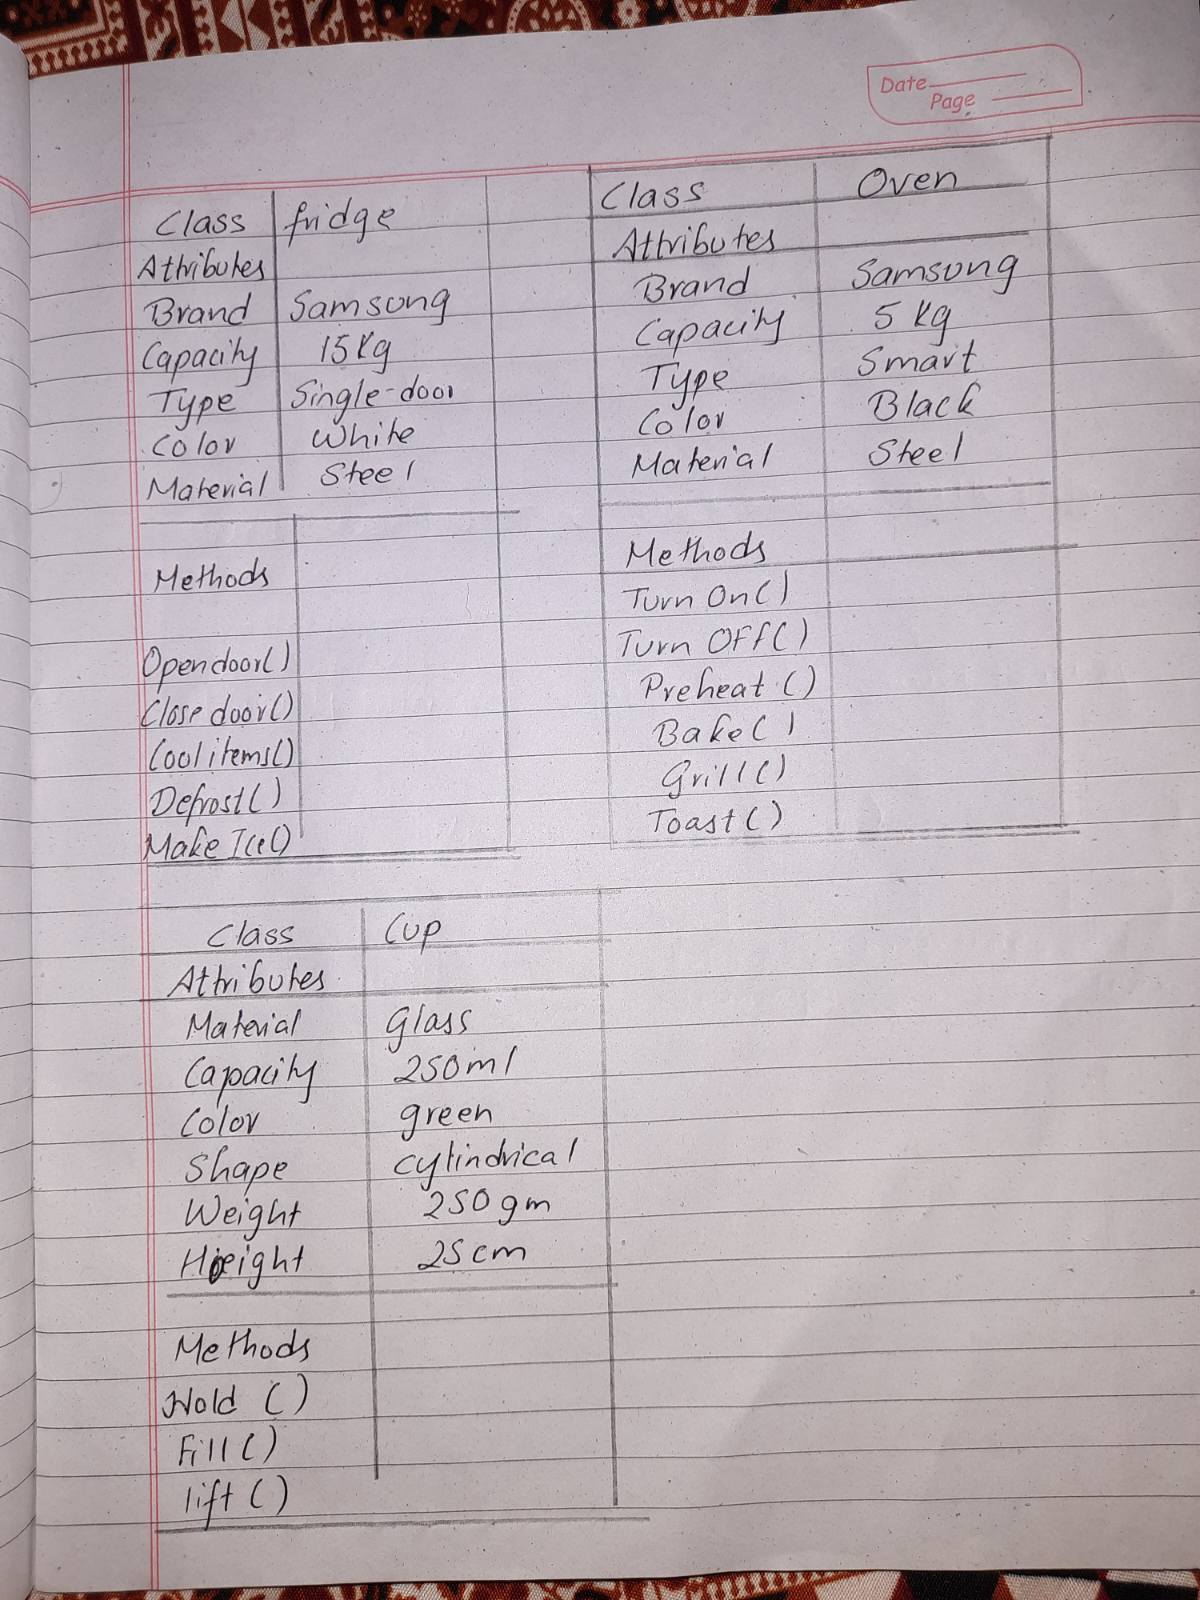 Date
Page
Class fridge
Attributes
Brand Samsung
Capacity 15Kg
Type Single-door
Color White
Material Steel
Methods
Open door()
Close door()
Cool items()
Defrost()
Make Ice()
Class Oven
Attributes
Brand Samsung
Capacity 5 Kg
Type Smart
Color Black
Material Steel
Methods
Turn On()
Turn Off()
Preheat ()
Bake()
Grill()
Toast()
Class Cup
Attributes
Material Glass
Capacity 250ml
Color green
Shape cylindrical
Weight 250gm
Height 25cm
Methods
Hold ()
Fill()
lift()